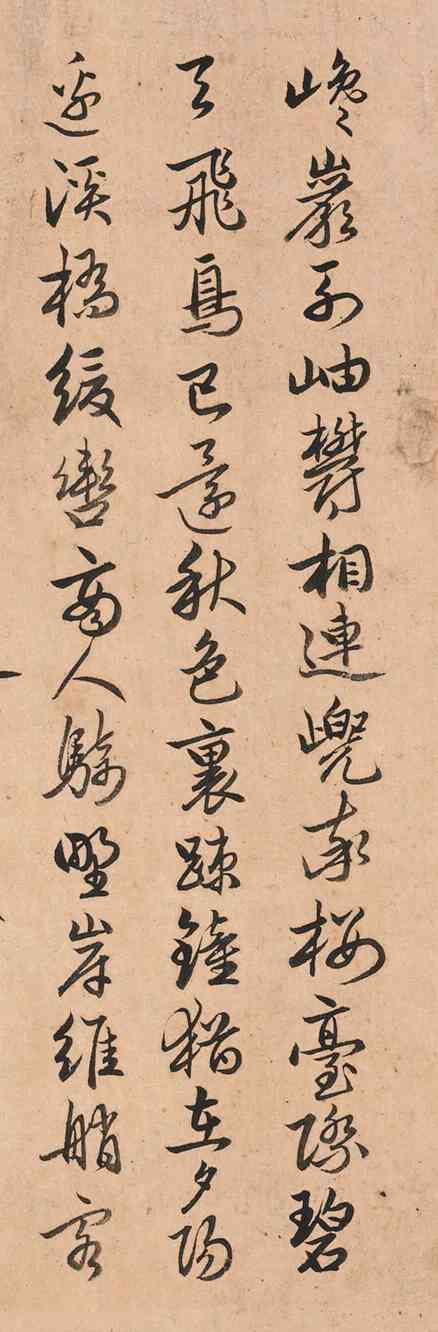 巉巖列岫鬱相連兜率樓臺際碧
天飛鳥已還秋色裏疎鐘猶在夕陽
邊溪橋緩轡商人騎野岸維艄客